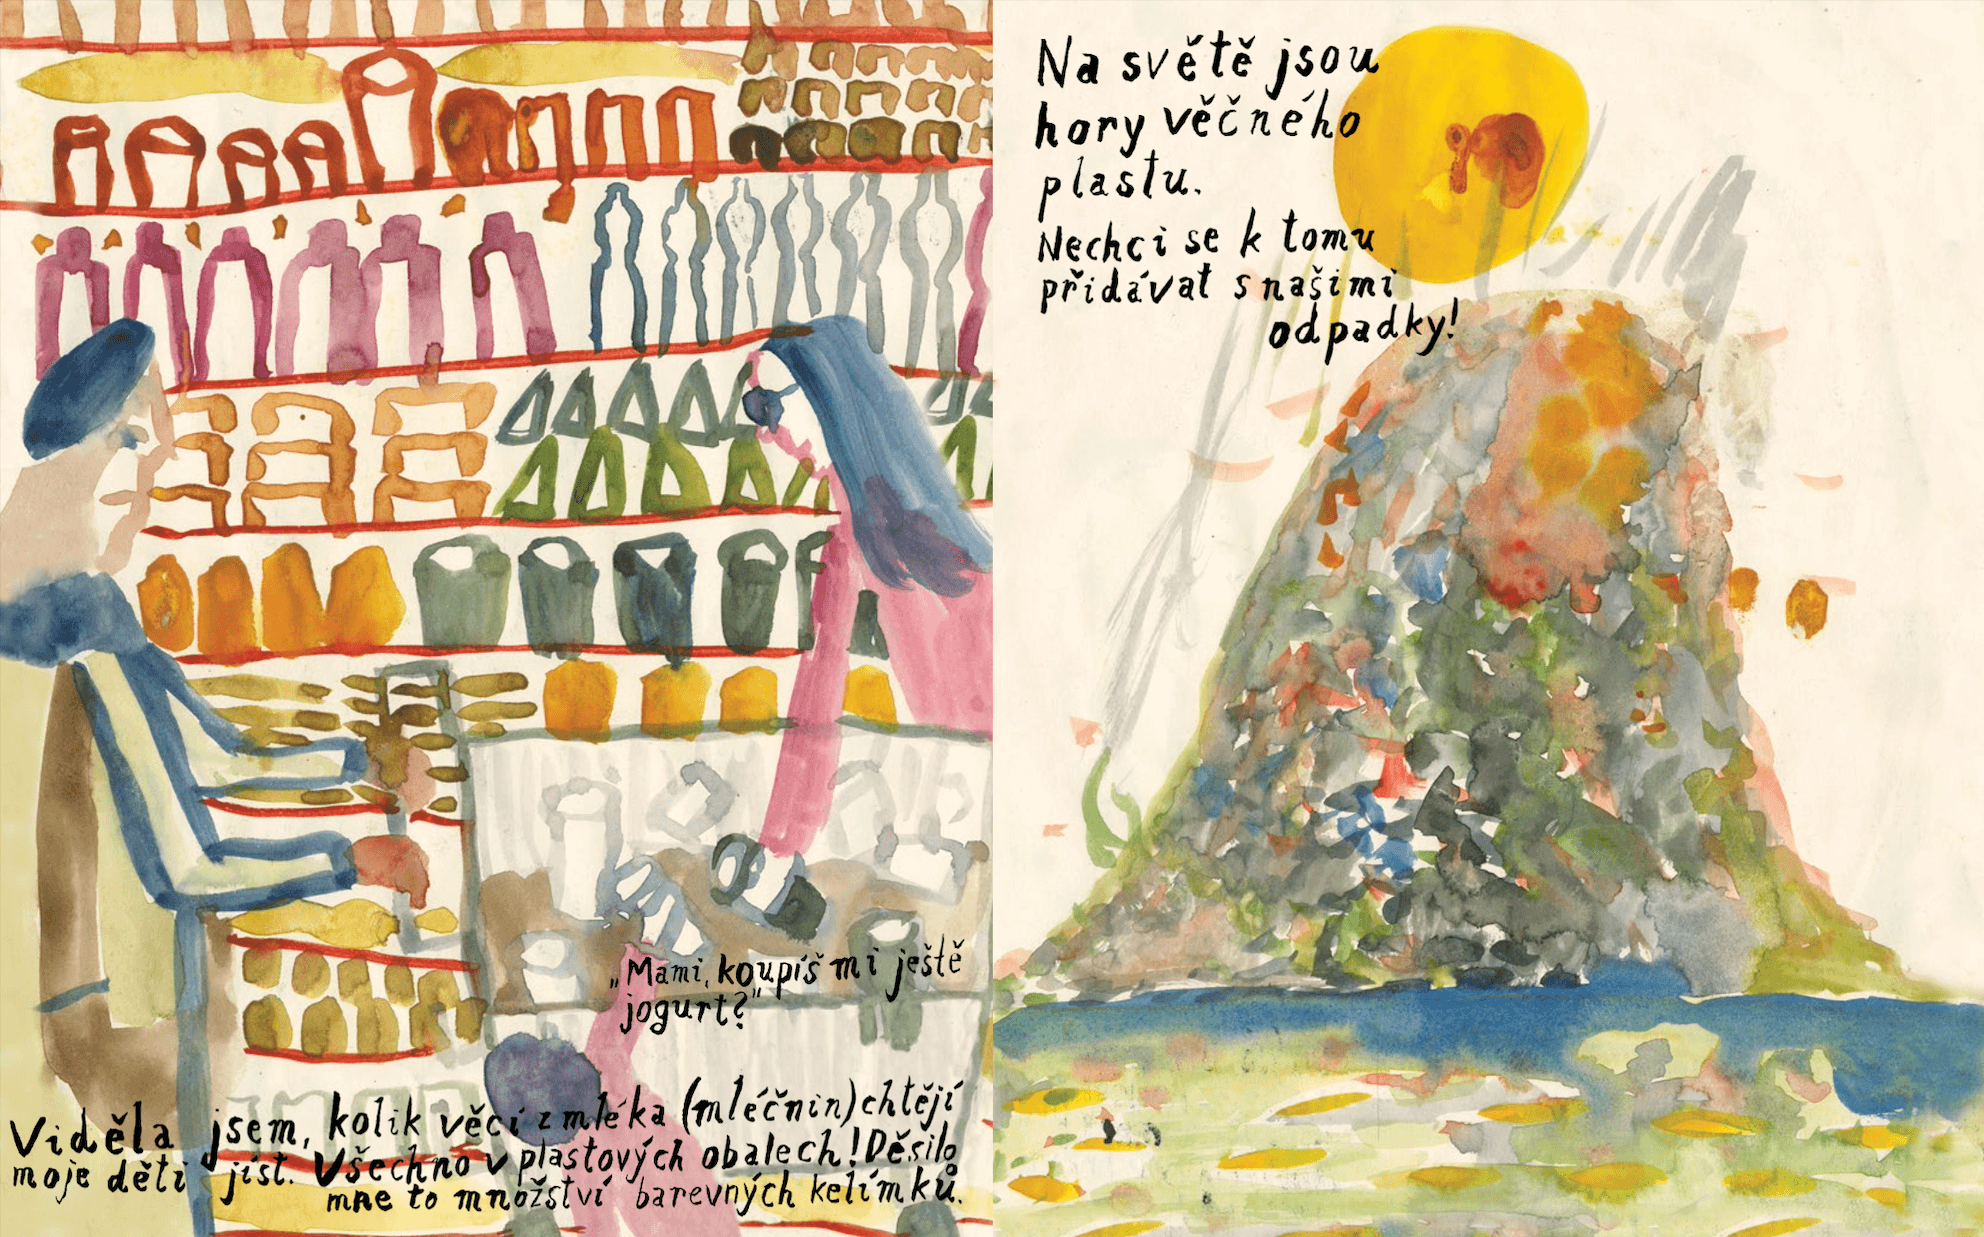 „Mami, koupíš mi ještě
jogurt?"
Viděla jsem, kolik věcí z mléka (mléčnin) chtějí
moje děti jíst. Všechno v plastových obalech! Děsilo
mne to množství barevných kelímků.
Na světě jsou
hory věčného
plastu.
Nechci se k tomu
přidávat s našimi
odpadky!